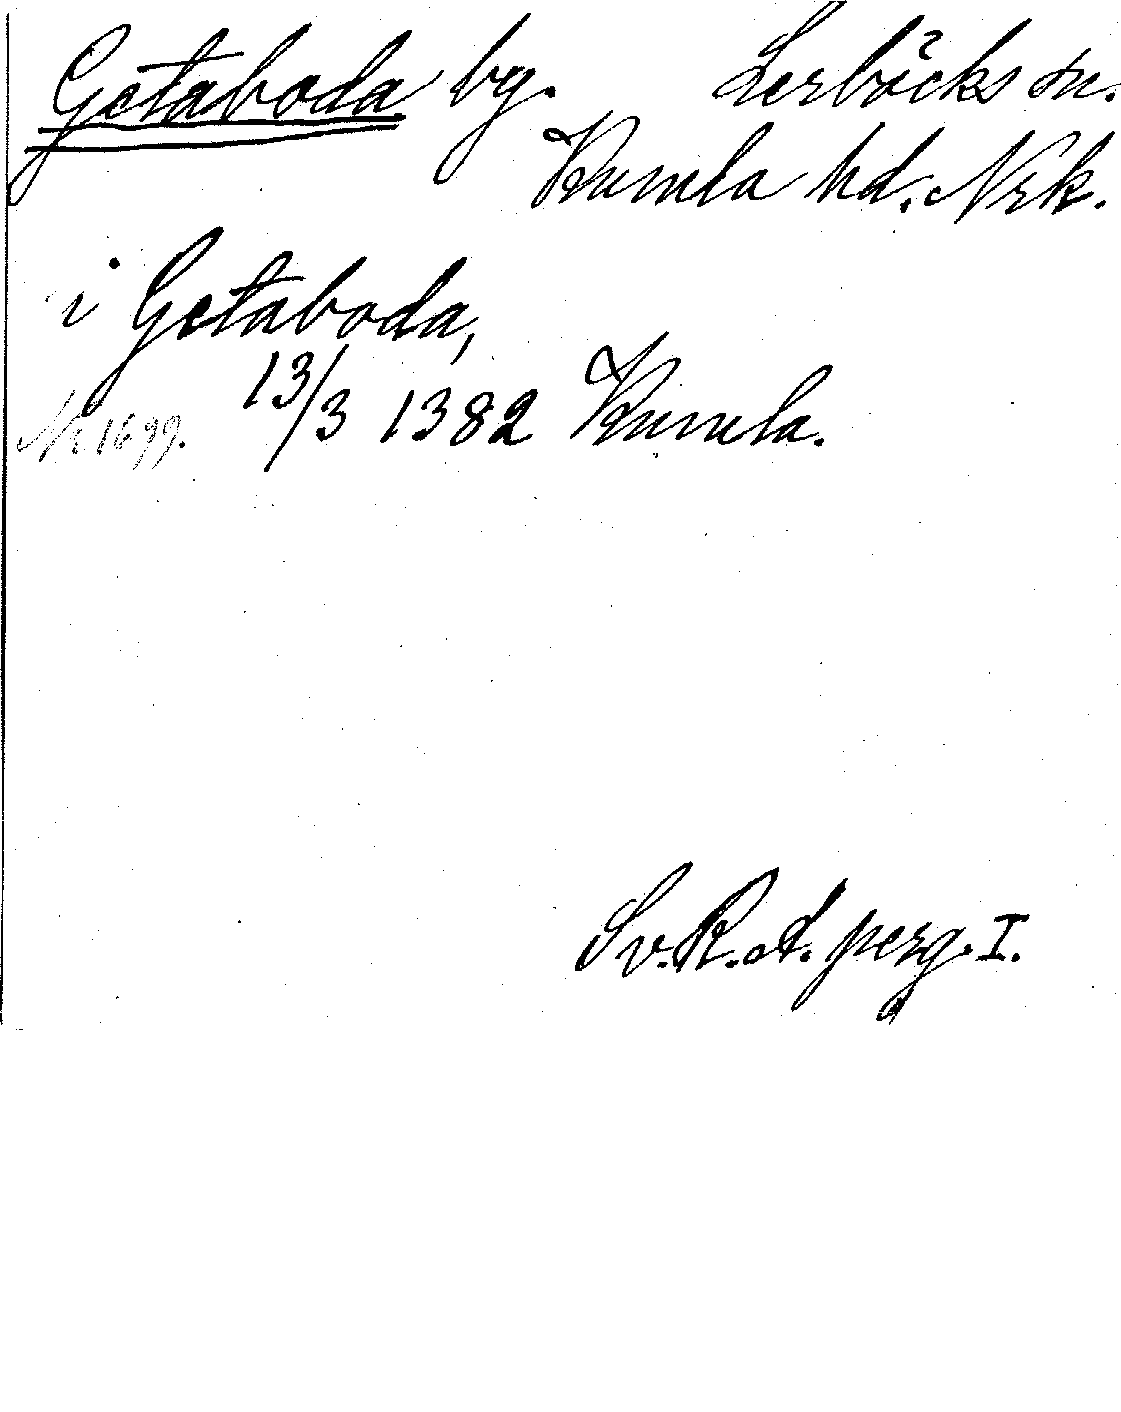 Getaboda by. Lerbäcks sn.
Kumla hd. Nrk.
i Getaboda,
13/3 1382 Kumla.
Nr 1699.
Sv. R. A. perg. I.